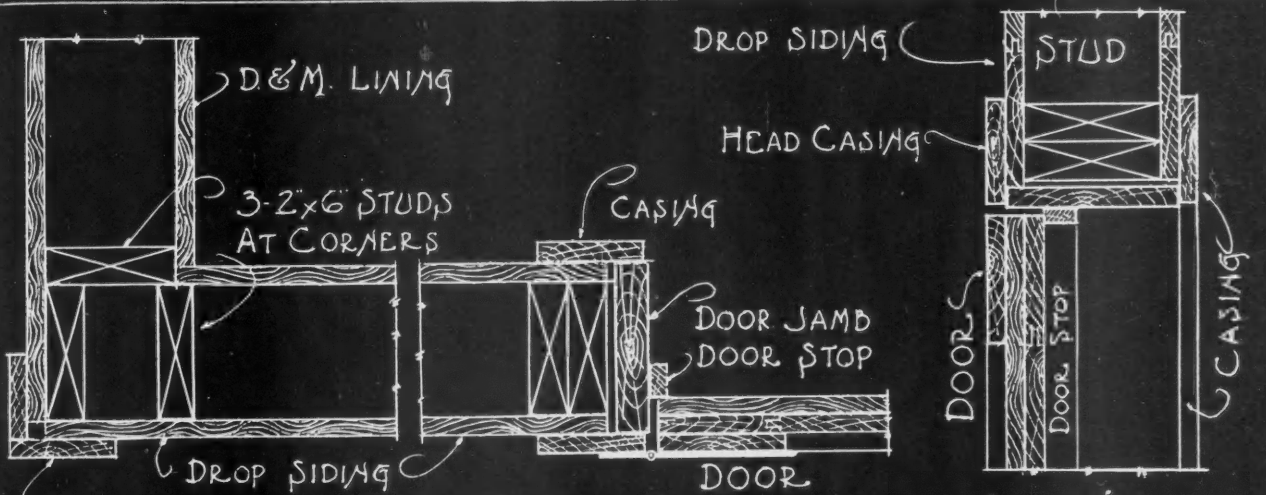 D. & M. LINING
3-2"x6" STUDS
AT CORNERS
CASING
DOOR JAMB
DOOR STOP
DROP SIDING
DOOR
DROP SIDING
STUD
HEAD CASING
DOOR
DOOR STOP
CASING